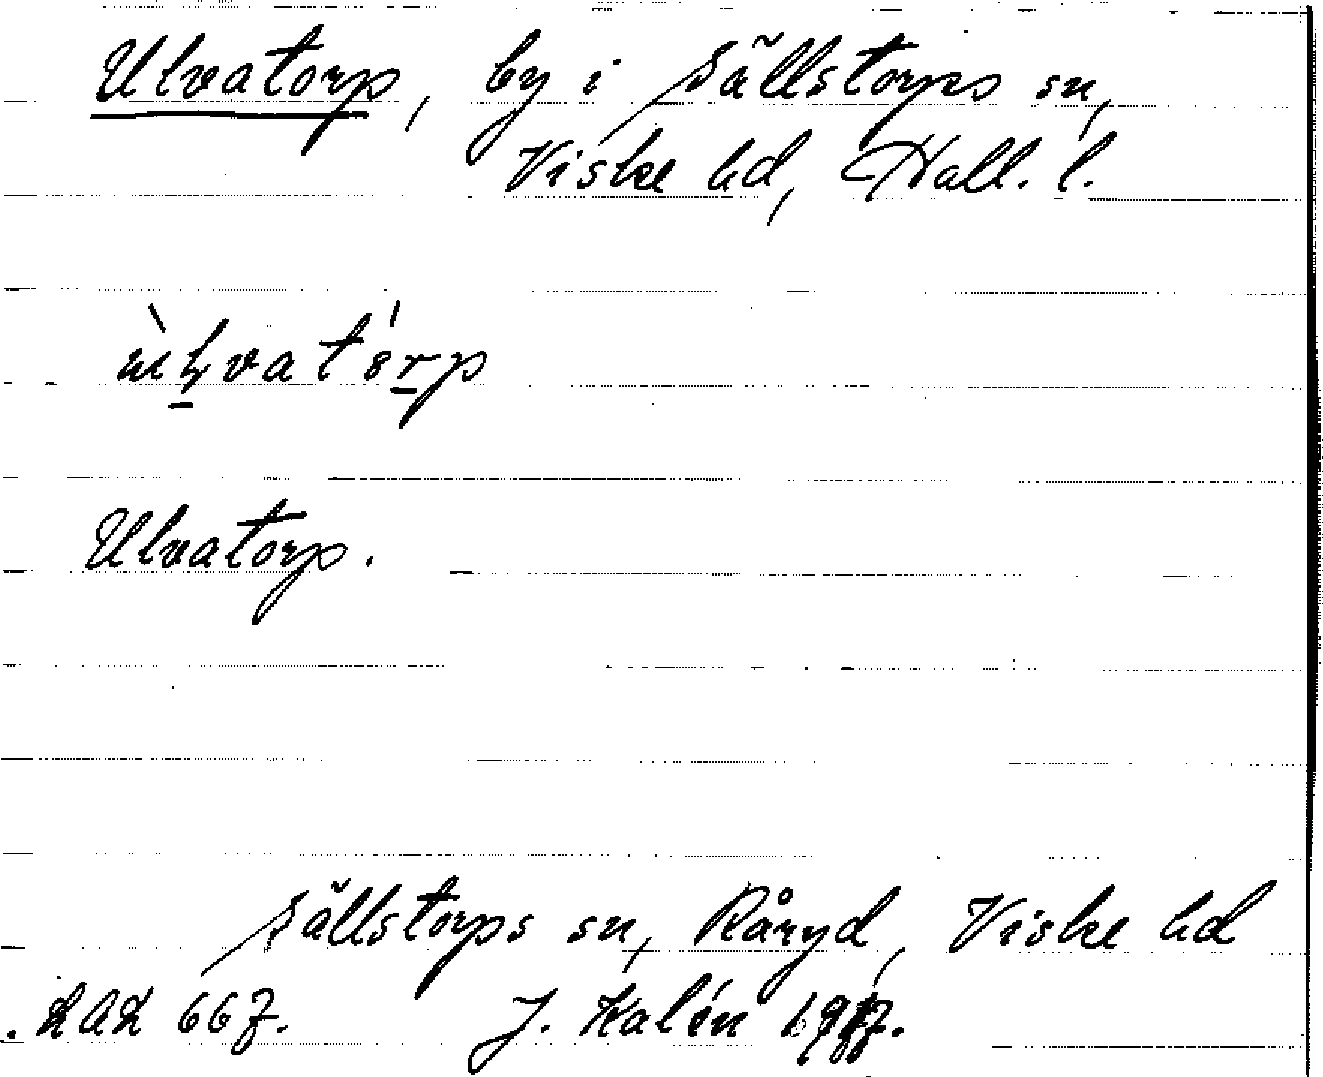 Ulvatorp, by i Sällstorps sn,
Viske hd, Hall. l.
Ulvatorp.
Sällstorps sn, Råryd, Viske hd
J. Kalén